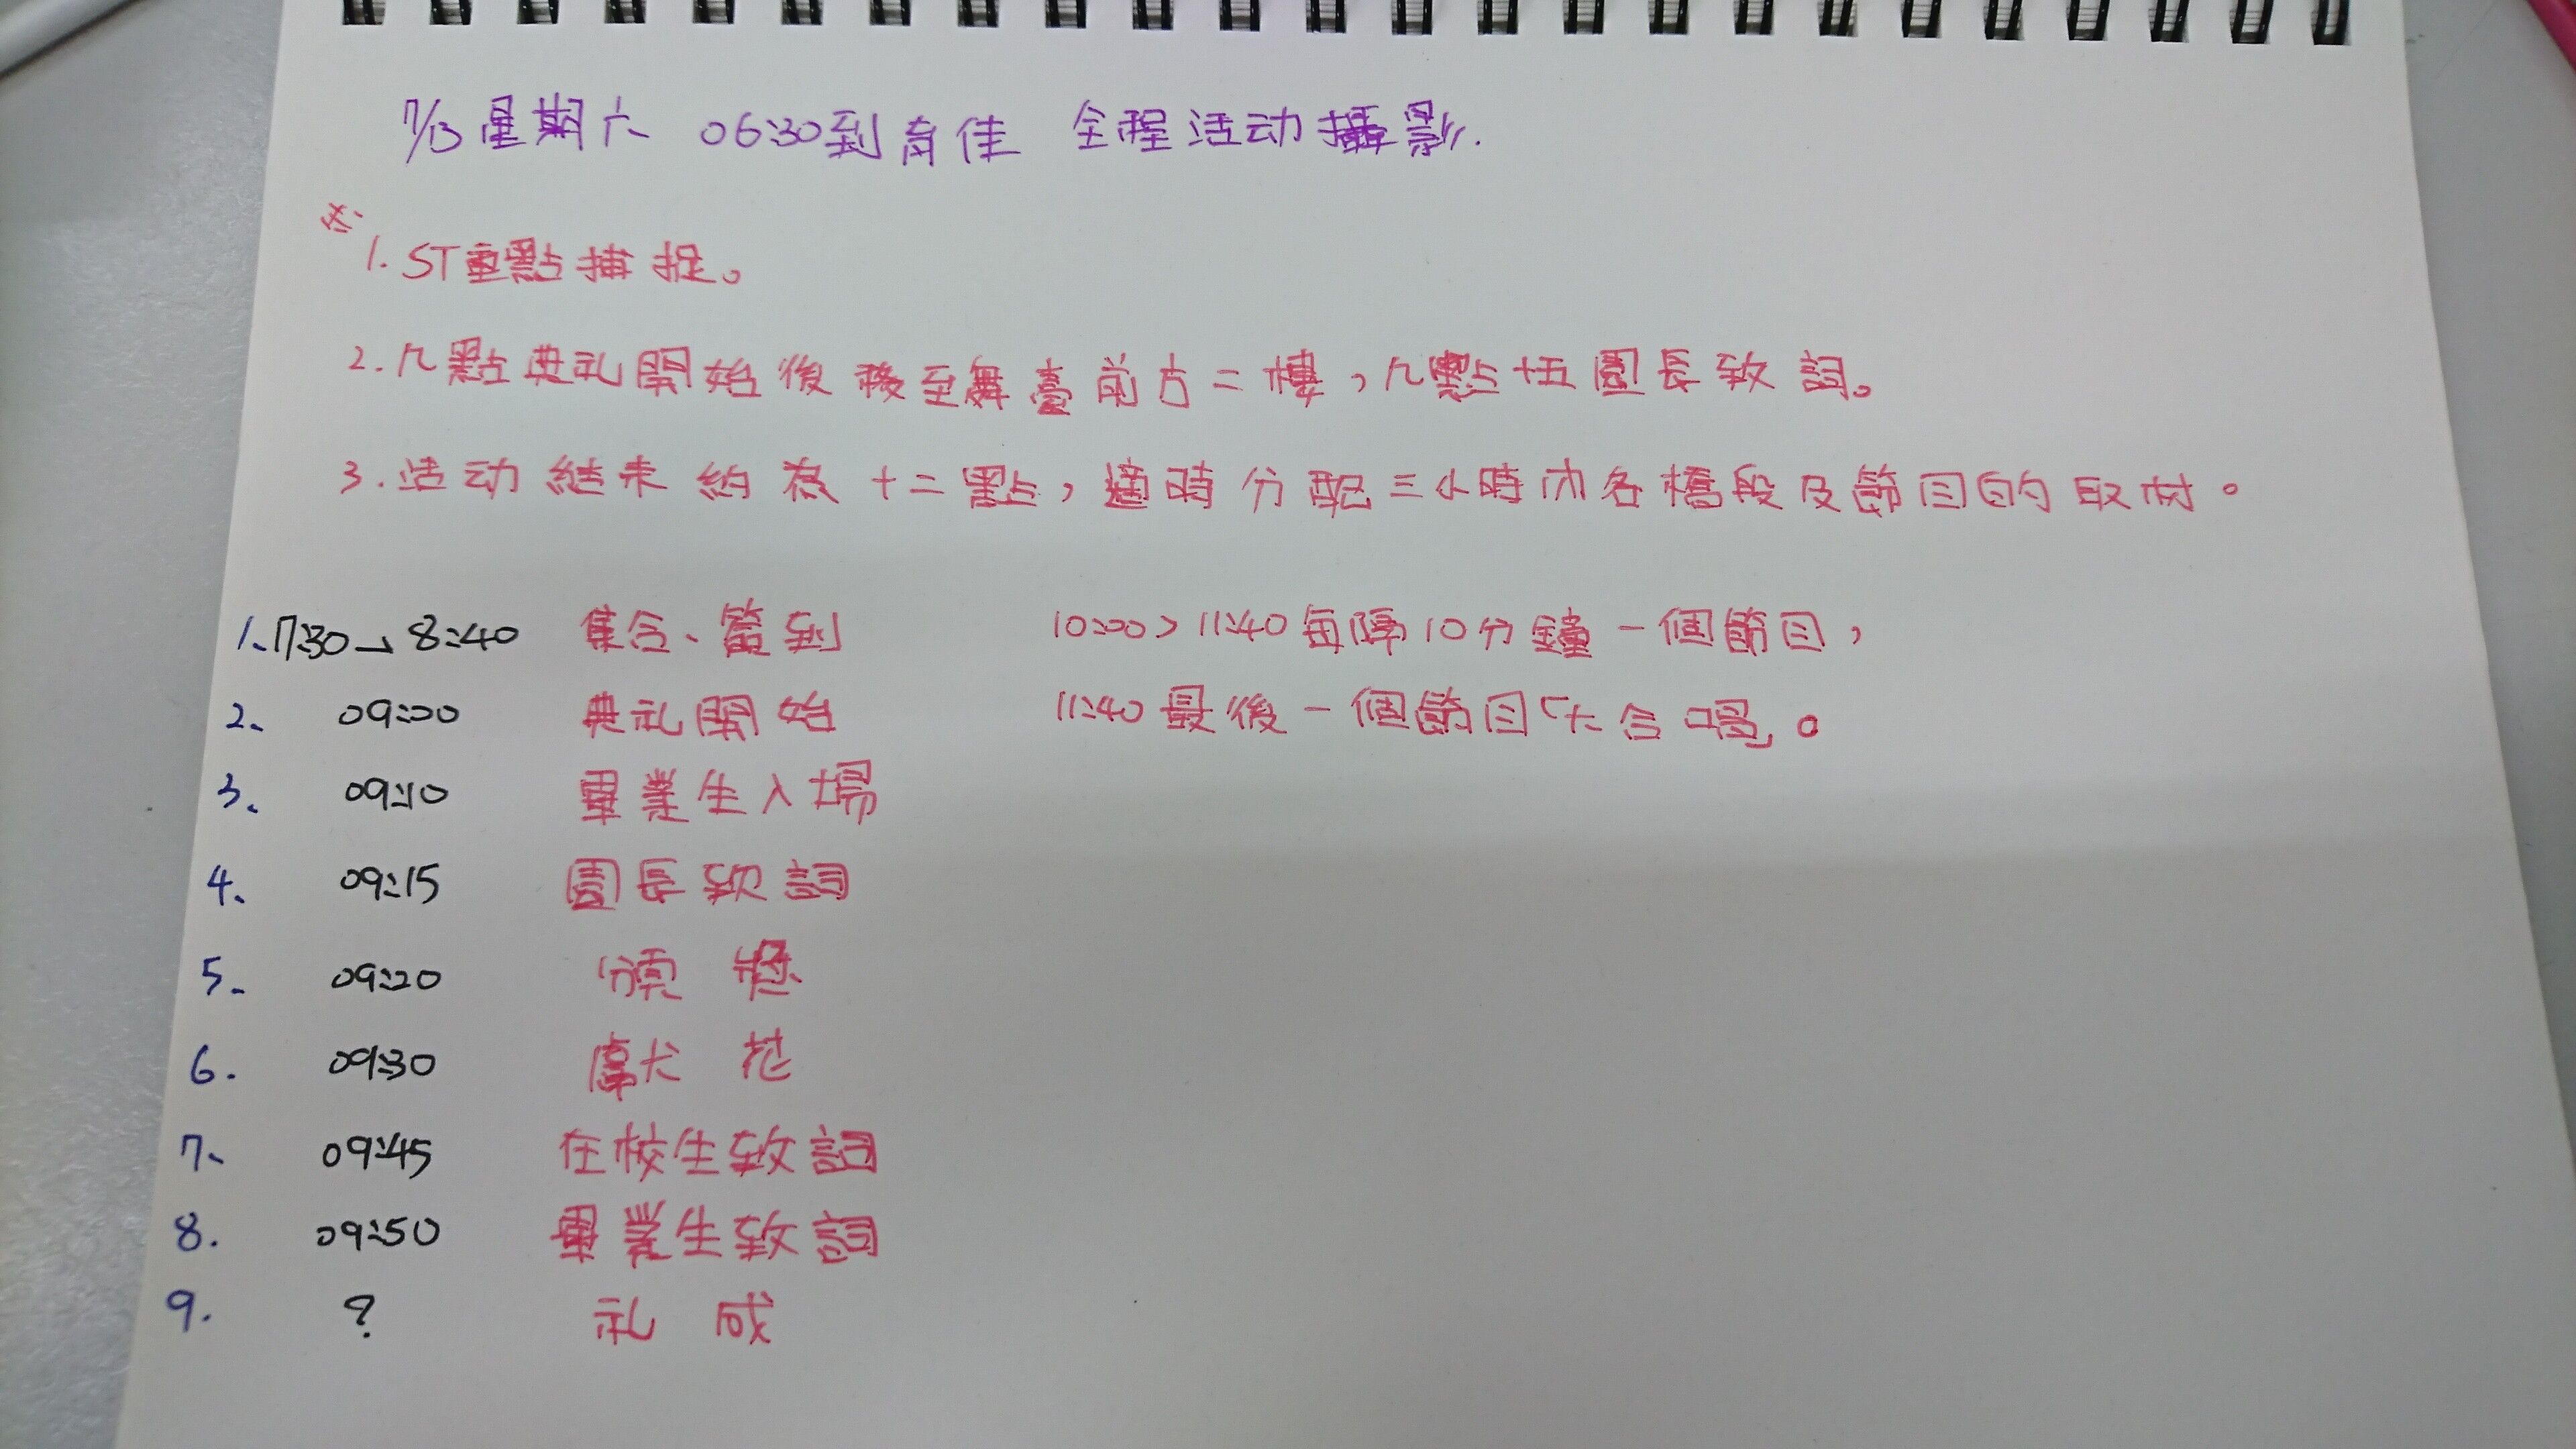 7/13星期六 06:30到育佳 全程活动攝影.
※
1. ST重點捕捉。
2. 九點典礼開始後移至舞臺前方二樓，九點十五園長致詞。
3. 活动結束約為十二點，適時分配三小時內各橋段及節目的取材。
1、7:30→8:40 集合、簽到
10:00>11:40每隔10分鐘一個節目，
2、 09:00 典礼開始
11:40最後一個節目「大合唱」。
3、 09:10 畢業生入場
4、 09:15 園長致詞
5、 09:20 頒獎
6. 09:30 獻花
7、 09:45 在校生致詞
8. 09:50 畢業生致詞
9. ? 礼成